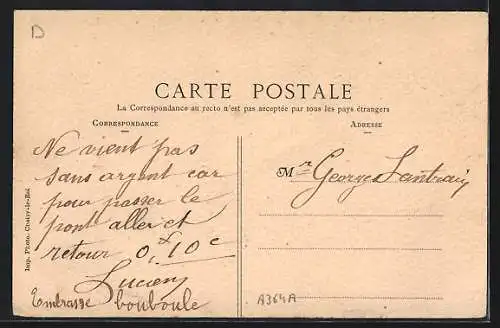 D
CARTE POSTALE
La Correspondance au recto n'est pas acceptée par tous les pays étrangers
CORRESPONDANCE
ADRESSE
Ne vient pas
sans argent car
pour passer le
pont aller et
retour 0,10 c
Lucien
Embrasse bouboule
Mr Georges
A364A
Imp. Photo. Choisy-le-Roi